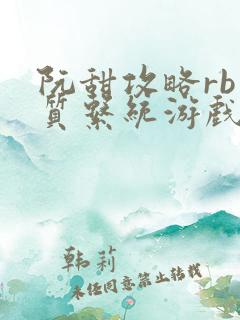 阮甜攻略rb
质系统游戏
韩莉
未经同意禁止转载